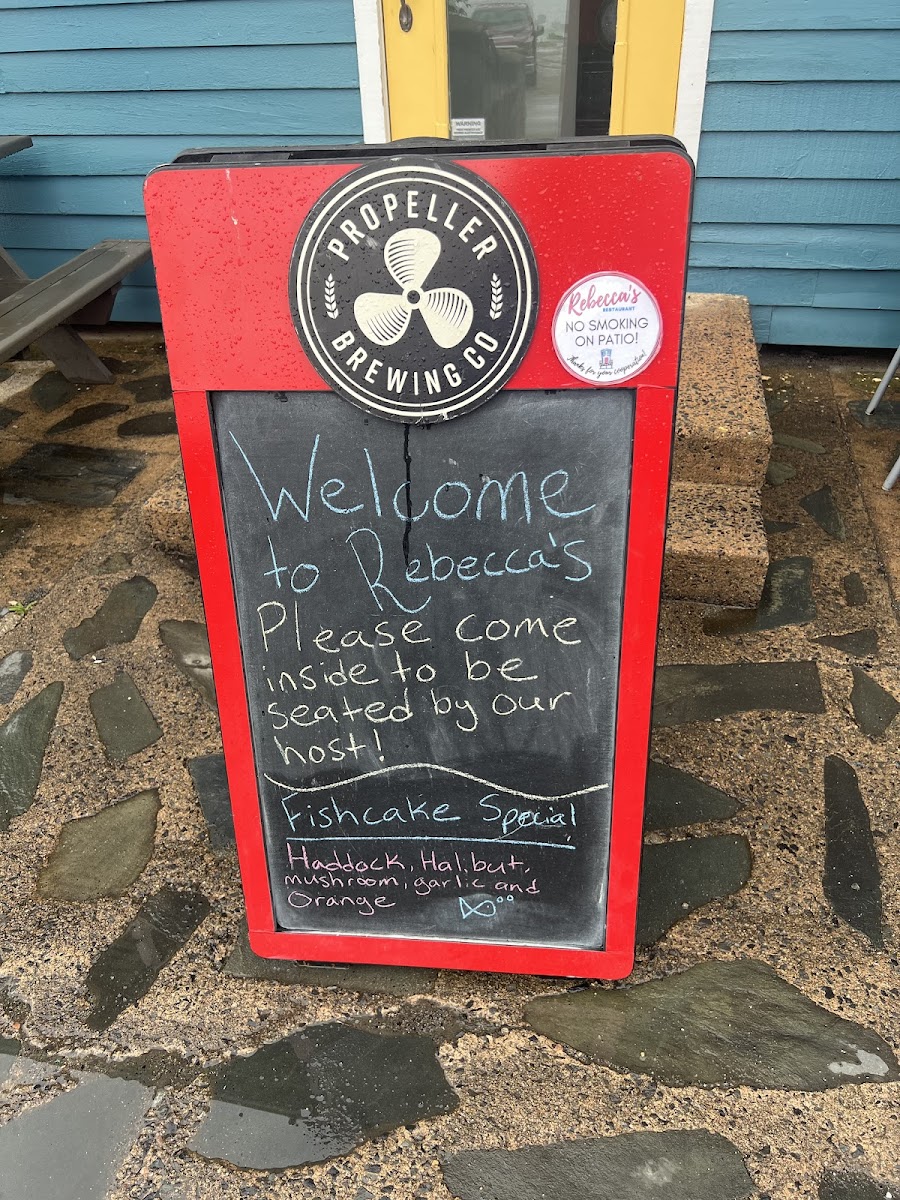 WARNING
PROPELLER
BREWING CO
Rebecca's
RESTAURANT
NO SMOKING
ON PATIO!
Thanks for your cooperation!
Welcome
to Rebecca's
Please come
inside to be
seated by our
host!
Fishcake Special
Haddock, Halibut,
mushroom, garlic and
Orange